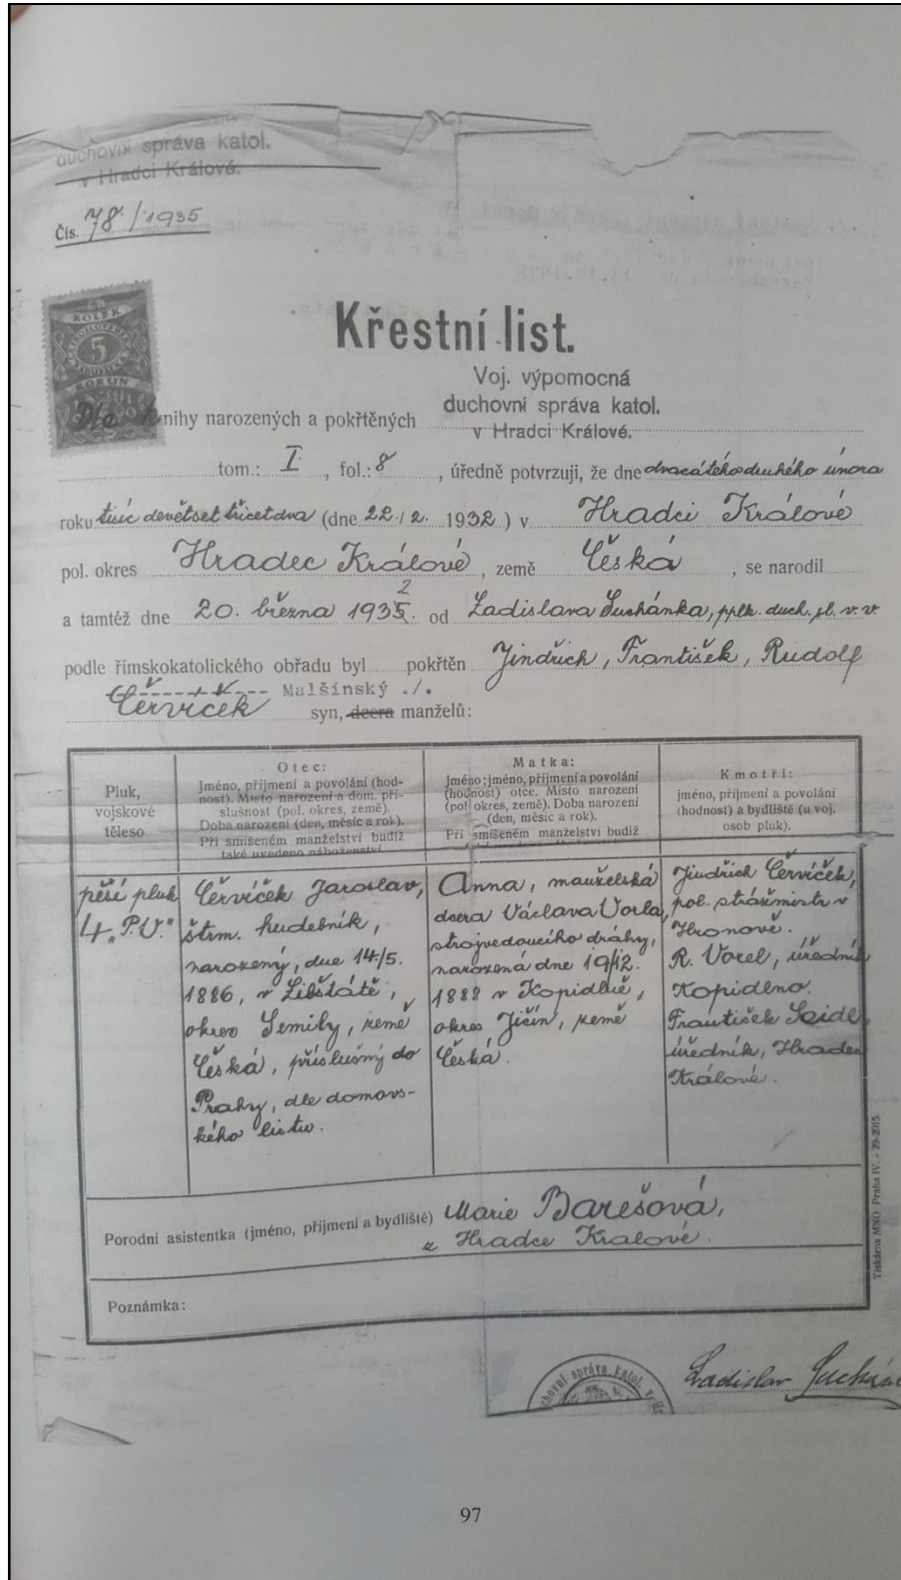 duchovní správa katol.
v Hradci Králové.
Čís. 78./1935
KOLEK
5
KORUN
Křestní list.
Voj. výpomocná
duchovní správa katol.
v Hradci Králové.
Dle knihy narozených a pokřtěných
tom.: I., fol.: 8, úředně potvrzuji, že dne dvacátéhodruhého února
roku tisíc devětset třicetdva (dne 22./2. 1932) v Hradci Králové
pol. okres Hradec Králové, země Česká, se narodil
a tamtéž dne 20. března 1935. 2 od Ladislava Suchánka, pplk. duch. sl. v. v.
podle římskokatolického obřadu byl pokřtěn Jindřich, František, Rudolf
Červíček Malšínský ./.
syn, dcera manželů:
Pluk,
vojskové
těleso
Otec:
Jméno, příjmení a povolání (hod-
nost). Místo narození a dom. pří-
slušnost (pol. okres, země).
Doba narození (den, měsíc a rok).
Při smíšeném manželství budiž
také uvedeno náboženství.
Matka:
Jméno; jméno, příjmení a povolání
(hodnost) otce. Místo narození
(pol. okres, země). Doba narození
(den, měsíc a rok).
Při smíšeném manželství budiž
Kmotři:
jméno, příjmení a povolání
(hodnost) a bydliště (u voj.
osob pluk).
pěší pluk
4 „P.V."
Červíček Jaroslav,
štrm. hudebník,
narozený, dne 14/5.
1886, v Libštátě,
okres Semily, země
Česká, příslušný do
Prahy, dle domovs-
kého listu.
Anna, manželská
dcera Václava Vorla,
strojvedoucího dráhy,
narozená dne 19/12.
1888 v Kopidlně,
okres Jičín, země
Česká.
Jindřich Červíček,
pol. strážmistr v
Hronově.
R. Vorel, úředník
Kopidlno.
František Seidl,
úředník, Hradec
Králové.
Porodní asistentka (jméno, příjmení a bydliště) Marie Barešová,
z Hradce Králové.
Poznámka:
Tiskárna MNO. Praha IV. - 29-2015.
duchovní správa katol. v
Ladislav
97